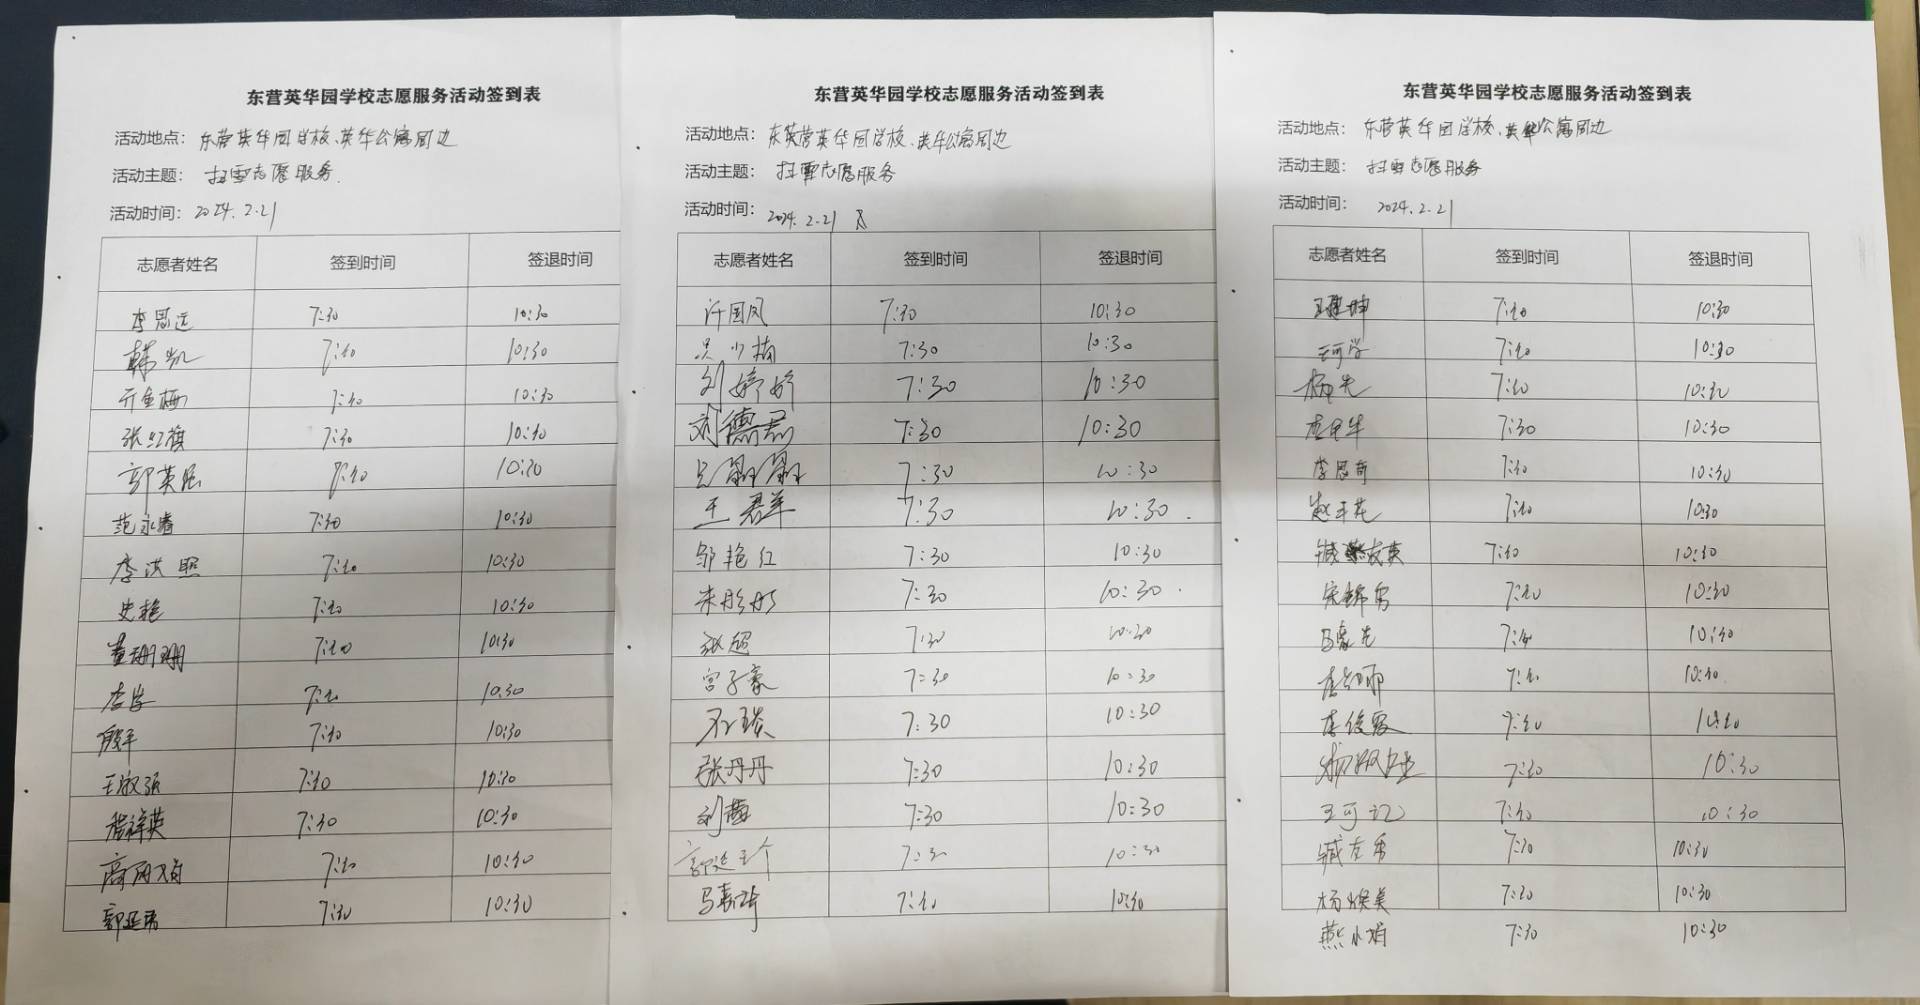 东营英华园学校志愿服务活动签到表
活动地点：东营英华园学校、英华公寓周边
活动主题：扫雪志愿服务.
活动时间：2024.2.21
志愿者姓名 签到时间 签退时间
李恩远 7:30 10:30
韩凯 7:30 10:30
亓鱼梅 7:30 10:30
张红旗 7:30 10:30
郭英강 7:30 10:30
范永春 7:30 10:30
李洪照 7:30 10:30
史艳 7:30 10:30
董珊珊 7:30 10:30
李学 7:30 10:30
殷平 7:30 10:30
王淑强 7:30 10:30
程祥英 7:30 10:30
高丽娟 7:30 10:30
郭延伟 7:30 10:30
东营英华园学校志愿服务活动签到表
活动地点：东英营英华园学校、英华公寓周边
活动主题：扫雪志愿服务
活动时间：2024.2.21
志愿者姓名 签到时间 签退时间
许国凤 7:30 10:30
吴少梅 7:30 10:30
刘婷婷 7:30 10:30
刘德君 7:30 10:30
7:30 10:30
王君羊 7:30 10:30.
邹艳红 7:30 10:30
朱彤彤 7:30 10:30.
张超 7:30 10:30
宫子豪 7:30 10:30
石琰 7:30 10:30
张丹丹 7:30 10:30
刘梅 7:30 10:30
7:30 10:30
马嘉琦 7:30 10:30
东营英华园学校志愿服务活动签到表
活动地点：东营英华园学校、英华公寓周边
活动主题：扫雪志愿服务
活动时间：2024.2.21
志愿者姓名 签到时间 签退时间
王建坤 7:30 10:30
7:30 10:30
杨先 7:30 10:30
7:30 10:30
李恩奇 7:30 10:30
赵玉花 7:30 10:30
臧友英 7:30 10:30
宋锦男 7:30 10:30
7:30 10:30
7:30 10:30.
李俊霞 7:30 10:30
杨淑贞 7:30 10:30
王可心 7:30 10:30
臧左帝 7:30 10:30
杨焕美 7:30 10:30
燕小娟 7:30 10:30